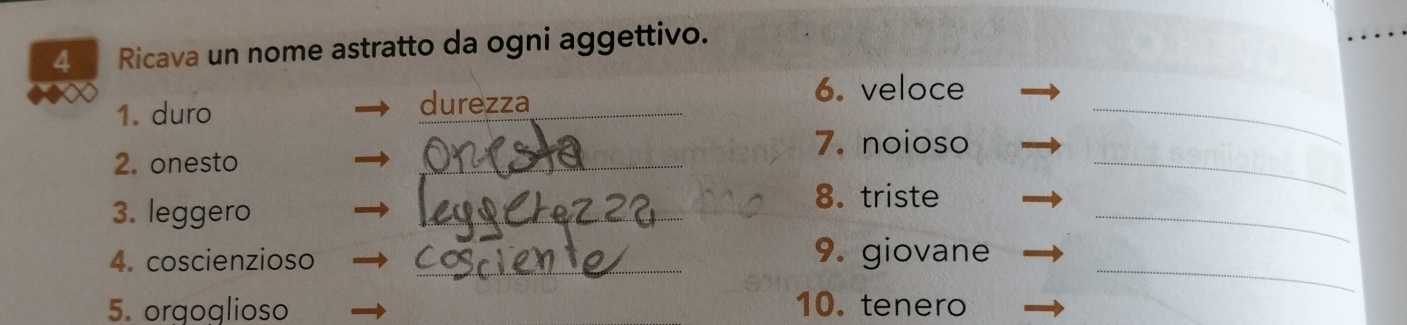 4 Ricava un nome astratto da ogni aggettivo.
1. duro → durezza
2. onesto → onesta
3. leggero → leggerezza
4. coscienzioso → cosciente
5. orgoglioso →
6. veloce →
7. noioso →
8. triste →
9. giovane →
10. tenero →